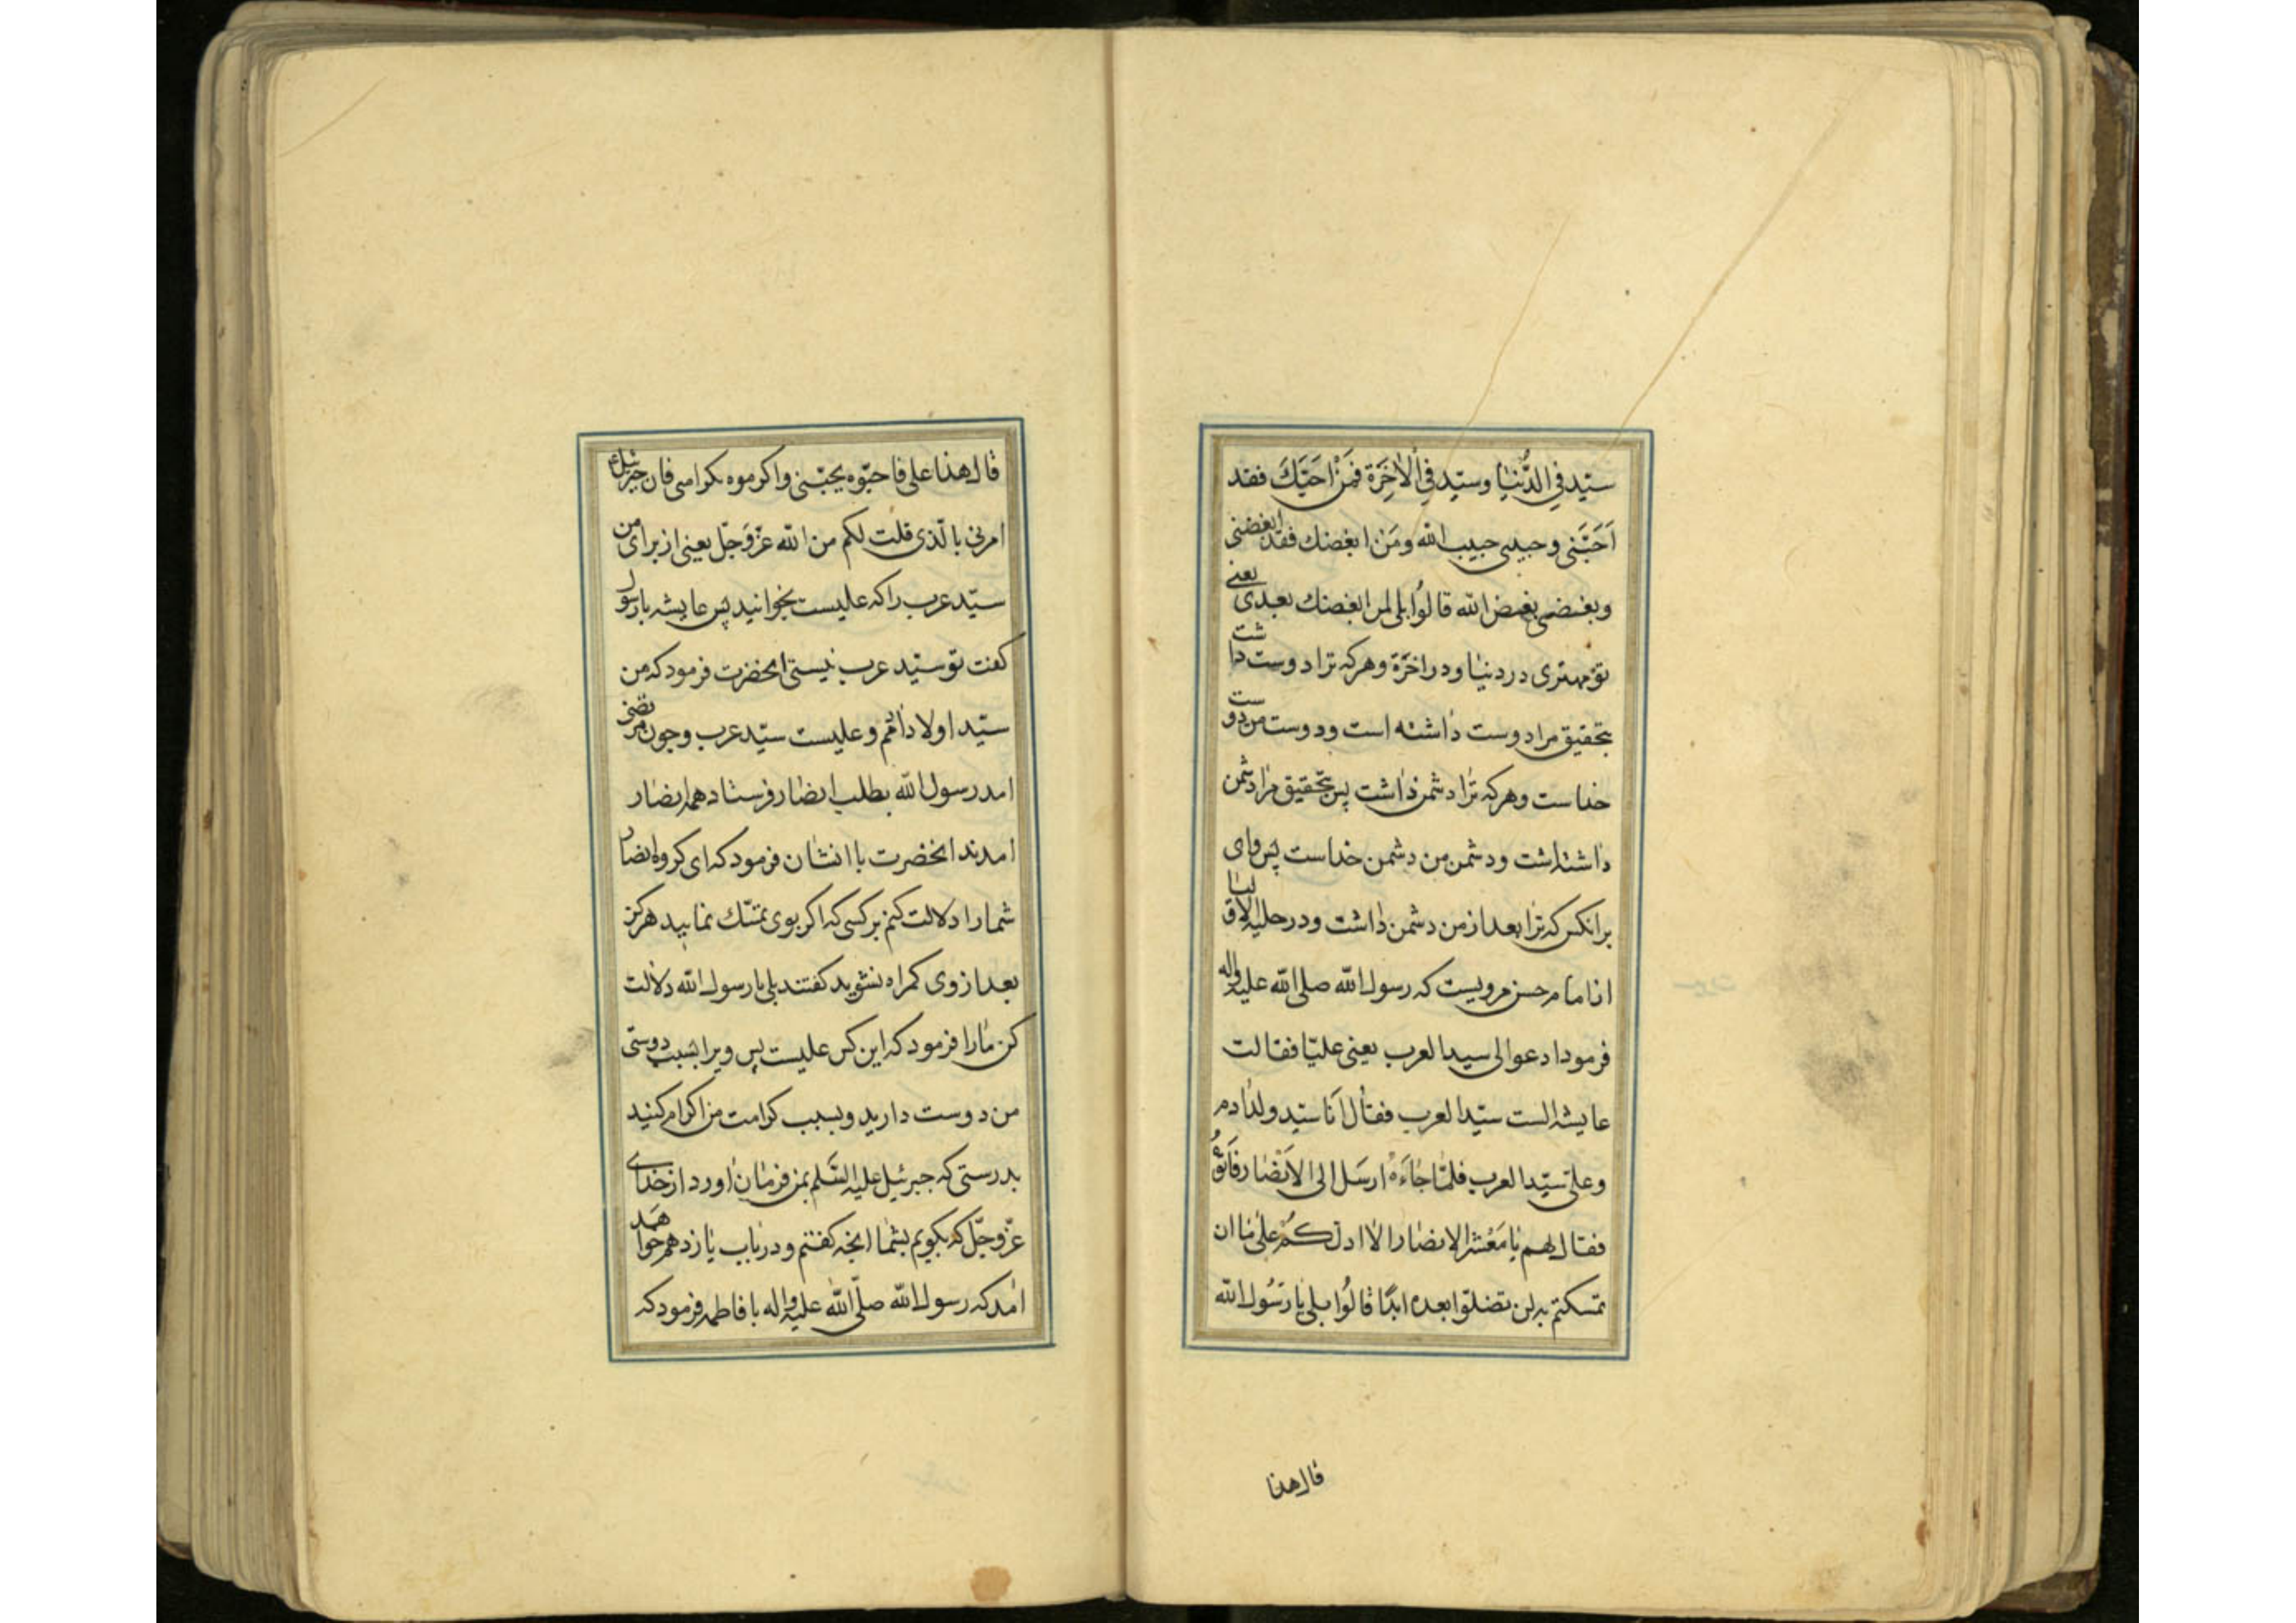 سیّد فی الدُّنیٰا وسیّد فی الْاٰخِرَة فَمَنْ اَحَبَّكَ فقد
اَحَبَّنی وحبیبی حبیب الله ومَنْ ابغضك فقد ابغضنی
وبغضی بغض الله قالوُا بلی لمن ابغضك بعدی یعنی
تو مهتری در دنیٰا ودر اخرَة وهرکه ترا دوست داشت
بتحقیق مرا دوست دٰاشته است ودوست من دوست
خداست وهرکه ترٰا دشمن دٰاشت پس بتحقیق مرٰا دشمن
دٰاشته است ودشمن من دشمن خداست پس وای
برانکس که ترٰا بعد از من دشمن دٰاشت ودر حلیة الاولیا
از امام حسن مرویست که رسول الله صلی الله علیه واله
فرمود ادعوا لی سید العرب یعنی علیّا فقالت
عایشه الست سیّد العرب فقٰال اَنا سیّد ولد اٰدم
وعلیّ سیّد العرب فلمّٰا جٰاءَهْ ارسَل الی الاَنْصٰار فَاَتَوْهُ
فقال لهم یٰا مَعْشر الانصٰار الٰا ادلّکُمْ علٰی مٰا ان
تمسکتم به لن تضلّوا بعده ابدًا قٰالوُا بلی یٰا رَسُول الله
قال هذا
قال هذا علی فاحبّوه بحبّی واکرموه بکرامتی فان جبرئیل
امرنی بالّذی قلت لکم من الله عزّوَجلّ یعنی از برای من
سیّد عرب را که علیست بخوانید پس عایشه با رسول
کفت تو سیّد عرب نیستی انحضرت فرمود که من
سیّد اولاد اٰدمم وعلیست سیّد عرب وچون مرتضی
امد رسول الله بطلب انصٰار فرستاد همه انصٰار
امدند انحضرت با انشان فرمود که ای کروه انصار
شما را دلالت کنم برکسی که اکر بوی تمسّك نمایید هرکز
بعد از وی کمراه نشوید کفتند بلی یا رسول الله دلٰالت
کن مٰا را فرمود که این کس علیست پس ویرا بسبب دوستی
من دوست دارید وبسبب کرامت من اکرام کنید
بدرستی که جبرئیل علیه السَّلم بمن فرمٰان اٰورد از خدای
عزّوجلّ که بکویم بشمٰا انچه کفتم ودر بٰاب یٰازدهم خواهد
اٰمد که رسول الله صلّی الله علیه واله با فاطمه فرمود که